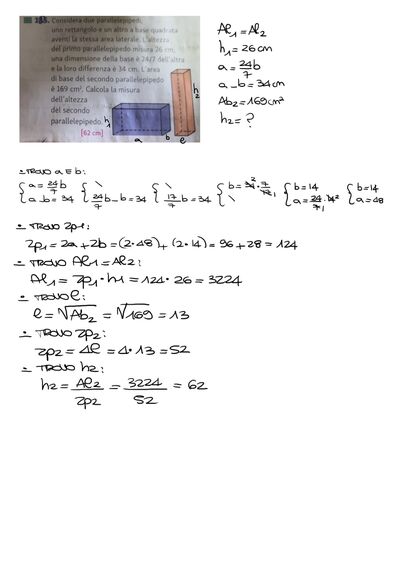 185. Considera due parallelepipedi,
uno rettangolo e un altro a base quadrata
aventi la stessa area laterale. L'altezza
del primo parallelepipedo misura 26 cm,
una dimensione della base è 24/7 dell'altra
e la loro differenza è 34 cm. L'area
di base del secondo parallelepipedo
è 169 cm². Calcola la misura
dell'altezza
del secondo
parallelepipedo.
[62 cm]
h1 a b h2 l
Al1 = Al2
h1 = 26 cm
a = 24/7 b
a - b = 34 cm
Ab2 = 169 cm²
h2 = ?
- TROVO a E b:
{a = 24/7 b {\ {\ {b = 34² · 7/17 1 {b = 14 {b = 14
{a - b = 34 {24/7 b - b = 34 {17/7 b = 34 {\ {a = 24/7 1 · 14² {a = 48
- TROVO 2p1:
2p1 = 2a + 2b = (2 · 48) + (2 · 14) = 96 + 28 = 124
- TROVO Al1 = Al2:
Al1 = 2p1 · h1 = 124 · 26 = 3224
- TROVO l:
l = √Ab2 = √169 = 13
- TROVO 2p2:
2p2 = 4l = 4 · 13 = 52
- TROVO h2:
h2 = Al2/2p2 = 3224/52 = 62